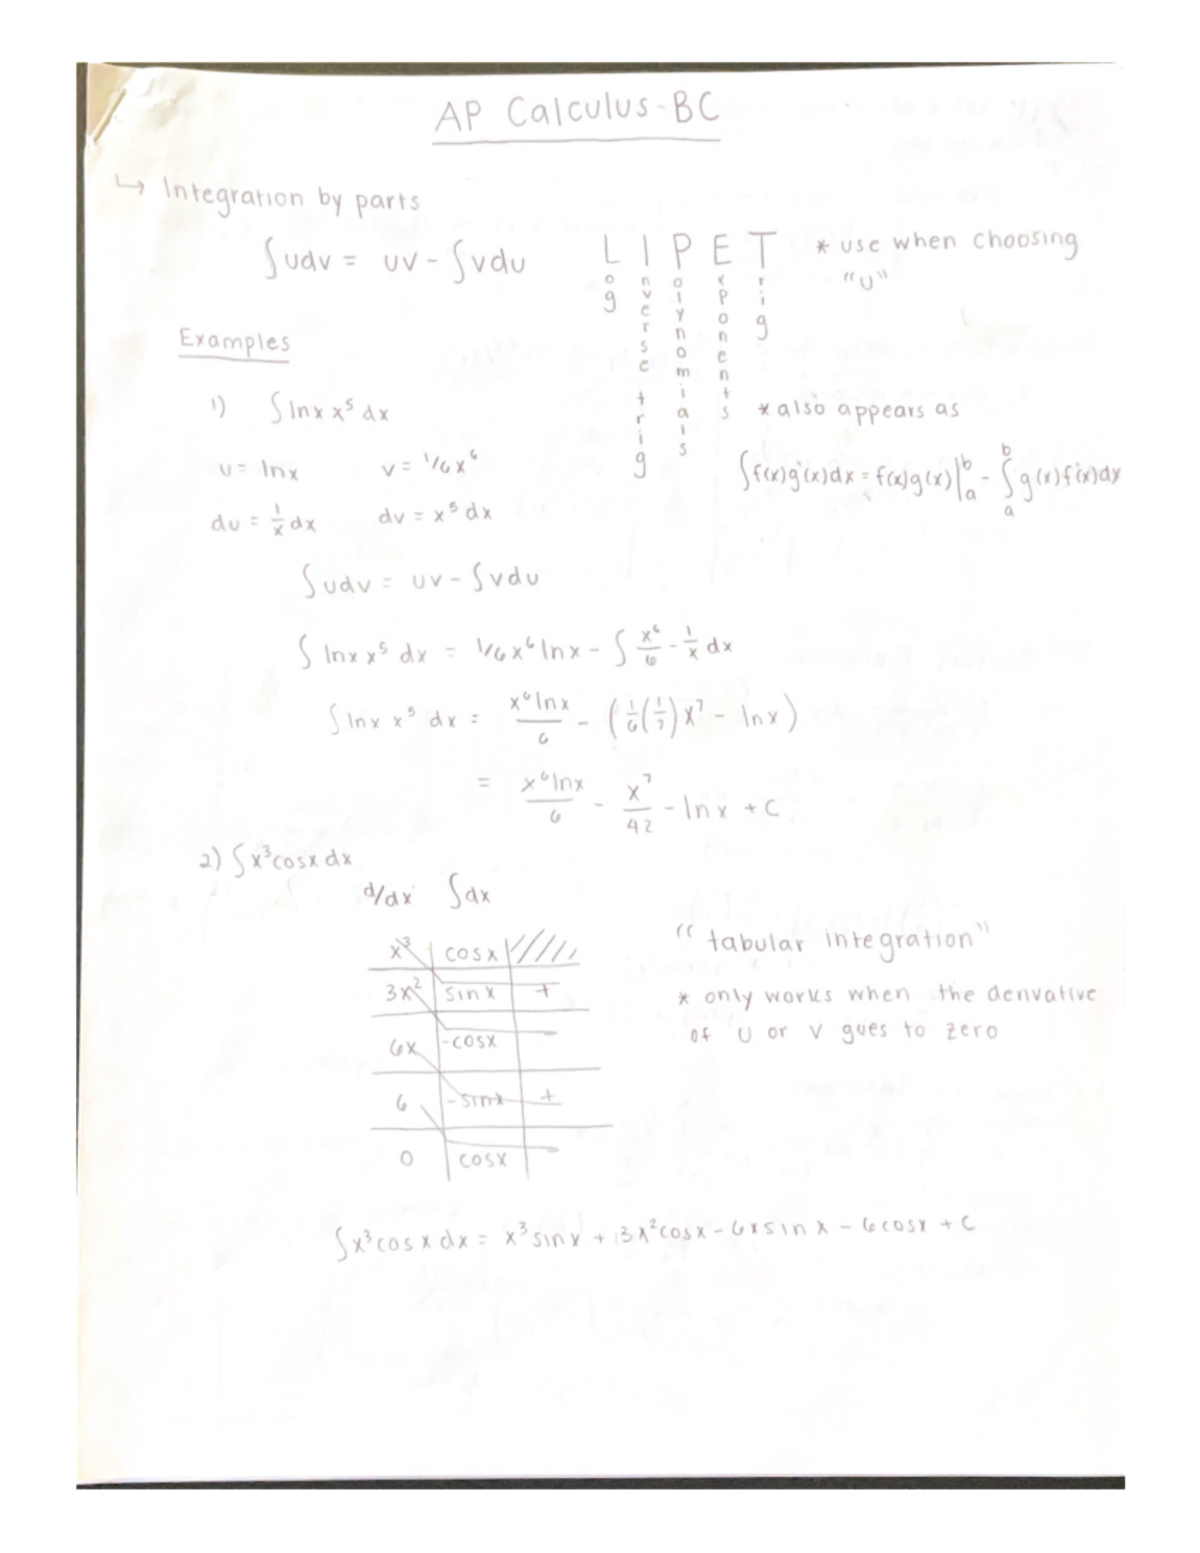 AP Calculus-BC
↳ Integration by parts
∫udv = uv - ∫vdu
L I P E T * use when choosing "U"
Log
Inverse trig
Polynomials
Exponents
Trig
Examples
1) ∫lnx x⁵ dx
* also appears as
u = lnx v = 1/6x⁶
∫f(x)g'(x)dx = f(x)g(x)|ᵇₐ - ∫ᵇₐ g(x)f'(x)dx
du = 1/x dx dv = x⁵ dx
∫udv = uv - ∫vdu
∫ lnx x⁵ dx = 1/6x⁶ lnx - ∫ x⁶/6 - 1/x dx
∫lnx x⁵ dx = x⁶lnx/6 - (1/6(1/7)x⁷ - lnx)
= x⁶lnx/6 - x⁷/42 - lnx + C
2) ∫x³cosx dx
d/dx ∫dx
x³ cosx
3x² sinx +
6x -cosx -
6 -sinx +
0 cosx -
"tabular integration"
* only works when the derivative
of U or V goes to zero
∫x³cosxdx = x³sinx + 3x²cosx - 6xsinx - 6cosx + C